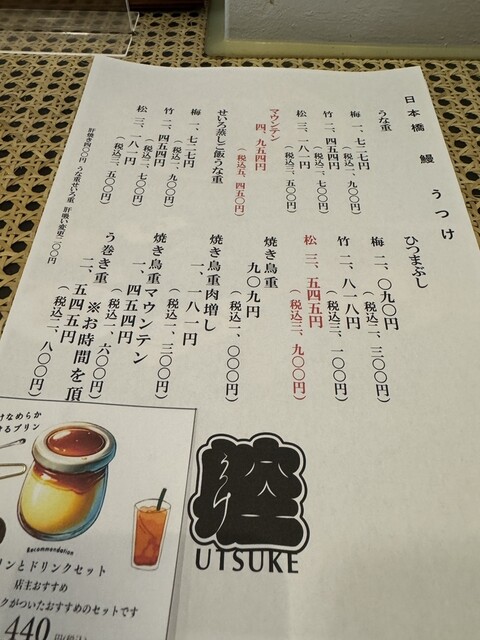 日本橋 鰻 うつけ
うな重
梅 一、七二七円
(税込一、九〇〇円)
竹 二、四五四円
(税込二、七〇〇円)
松 三、一八一円
(税込三、五〇〇円)
マウンテン
四、九五四円
(税込五、四五〇円)
せいろ蒸しご飯うな重
梅 一、七二七円
(税込一、九〇〇円)
竹 二、四五四円
(税込二、七〇〇円)
松 三、一八一円
(税込三、五〇〇円)
肝焼き四〇〇円 うな重せいろ重 肝吸い変更二〇〇円
ひつまぶし
梅 二、〇九〇円
(税込二、三〇〇円)
竹 二、八一八円
(税込三、一〇〇円)
松 三、五四五円
(税込三、九〇〇円)
焼き鳥重
九〇九円
(税込一、〇〇〇円)
焼き鳥重肉増し
一、一八一円
(税込一、三〇〇円)
焼き鳥重マウンテン
一、四五四円
(税込一、六〇〇円)
う巻き重 ※お時間を頂
二、五四五円
(税込二、八〇〇円)
うつけ
UTSUKE
けなめらか
けるプリン
Recommendation
リンとドリンクセット
店主おすすめ
クがついたおすすめのセットです
440円(税込)